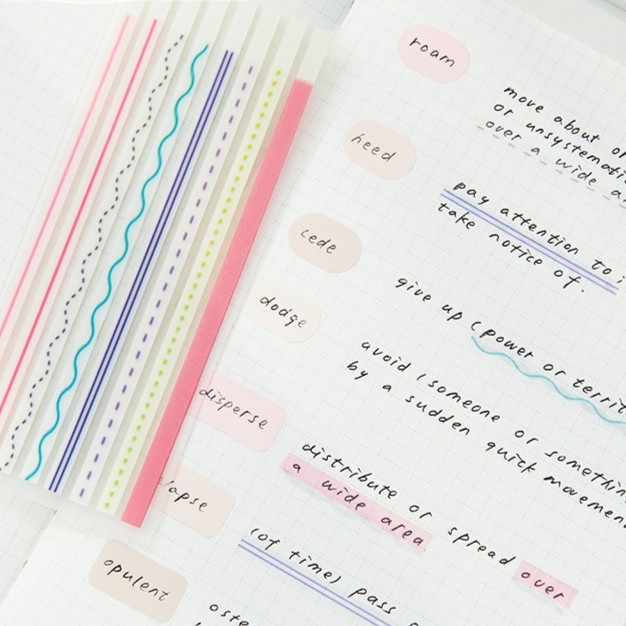 roam
move about or
or unsystemati
over a wide a
heed
pay attention to;
take notice of.
cede
give up (power or territ
dodge
avoid (someone or somethin
by a sudden quick movemen
disperse
distribute or spread over
a wide area
lapse
(of time) pass
opulent
oste